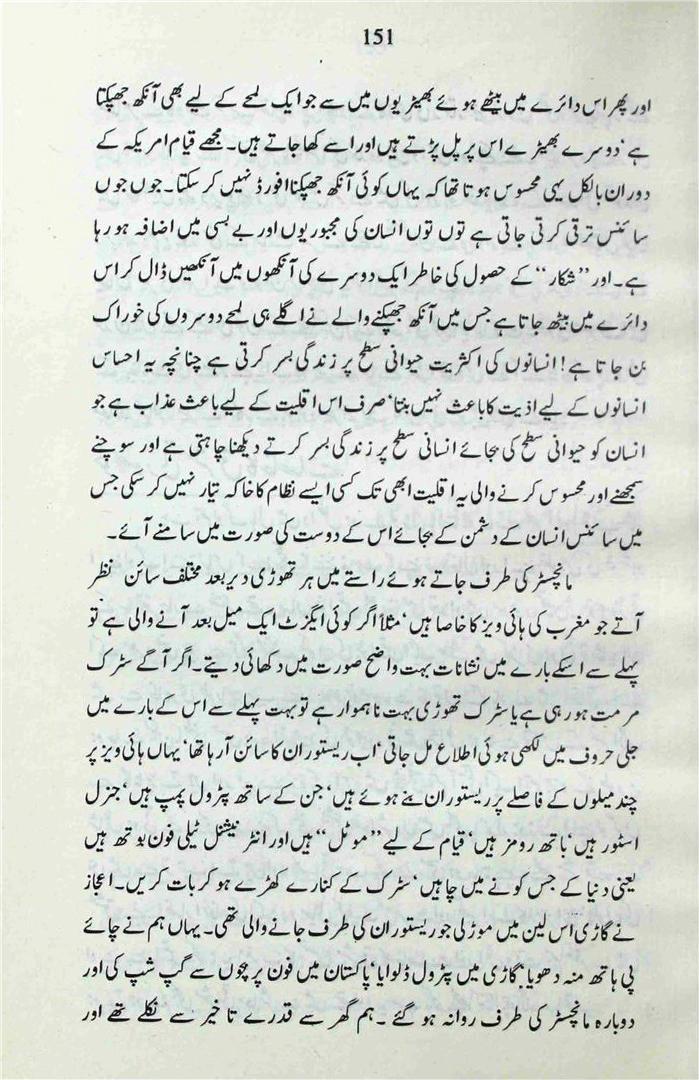 151
اور پھر اس دائرے میں بیٹھے ہوئے بھیڑیوں میں سے جو ایک لمحے کے لیے بھی آنکھ جھپکتا
ہے‘ دوسرے بھیڑے اس پر پل پڑتے ہیں اور اسے کھا جاتے ہیں۔ مجھے قیام امریکہ کے
دوران بالکل یہی محسوس ہوتا تھا کہ یہاں کوئی آنکھ جھپکنا افورڈ نہیں کر سکتا۔ جوں جوں
سائنس ترقی کرتی جاتی ہے توں توں انسان کی مجبوریوں اور بے بسی میں اضافہ ہو رہا
ہے۔ اور ’’شکار‘‘ کے حصول کی خاطر ایک دوسرے کی آنکھوں میں آنکھیں ڈال کر اس
دائرے میں بیٹھ جاتا ہے جس میں آنکھ جھپکنے والے نے اگلے ہی لمحے دوسروں کی خوراک
بن جاتا ہے! انسانوں کی اکثریت حیوانی سطح پر زندگی بسر کرتی ہے چنانچہ یہ احساس
انسانوں کے لیے اذیت کا باعث نہیں بنتا‘ صرف اس اقلیت کے لیے باعث عذاب ہے جو
انسان کو حیوانی سطح کی بجائے انسانی سطح پر زندگی بسر کرتے دیکھنا چاہتی ہے اور سوچنے
سمجھنے اور محسوس کرنے والی یہ اقلیت ابھی تک کسی ایسے نظام کا خاکہ تیار نہیں کر سکی جس
میں سائنس انسان کے دشمن کے بجائے اس کے دوست کی صورت میں سامنے آئے۔
مانچسٹر کی طرف جاتے ہوئے راستے میں ہر تھوڑی دیر بعد مختلف سائن نظر
آتے جو مغرب کی ہائی ویز کا خاصا ہیں‘ مثلاً اگر کوئی ایگزٹ ایک میل بعد آنے والی ہے تو
پہلے سے اسکے بارے میں نشانات بہت واضح صورت میں دکھائی دیتے۔ اگر آگے سڑک
مرمت ہو رہی ہے یا سڑک تھوڑی بہت ناہموار ہے تو بہت پہلے سے اس کے بارے میں
جلی حروف میں لکھی ہوئی اطلاع مل جاتی‘ اب ریستوران کا سائن آ رہا تھا‘ یہاں ہائی ویز پر
چند میلوں کے فاصلے پر ریستوران بنے ہوئے ہیں‘ جن کے ساتھ پٹرول پمپ ہیں‘ جنرل
اسٹور ہیں‘ باتھ رومز ہیں‘ قیام کے لیے ’’موٹل‘‘ ہیں اور انٹر نیشنل ٹیلی فون بوتھ ہیں
یعنی دنیا کے جس کونے میں چاہیں‘ سڑک کے کنارے کھڑے ہو کر بات کریں۔ اعجاز
نے گاڑی اُس لین میں موڑ لی جو ریستوران کی طرف جانے والی تھی۔ یہاں ہم نے چائے
پی ہاتھ منہ دھویا‘ گاڑی میں پٹرول ڈلوایا‘ پاکستان میں فون پر بچوں سے گپ شپ کی اور
دوبارہ مانچسٹر کی طرف روانہ ہو گئے ۔ ہم گھر سے قدرے تاخیر سے نکلے تھے اور